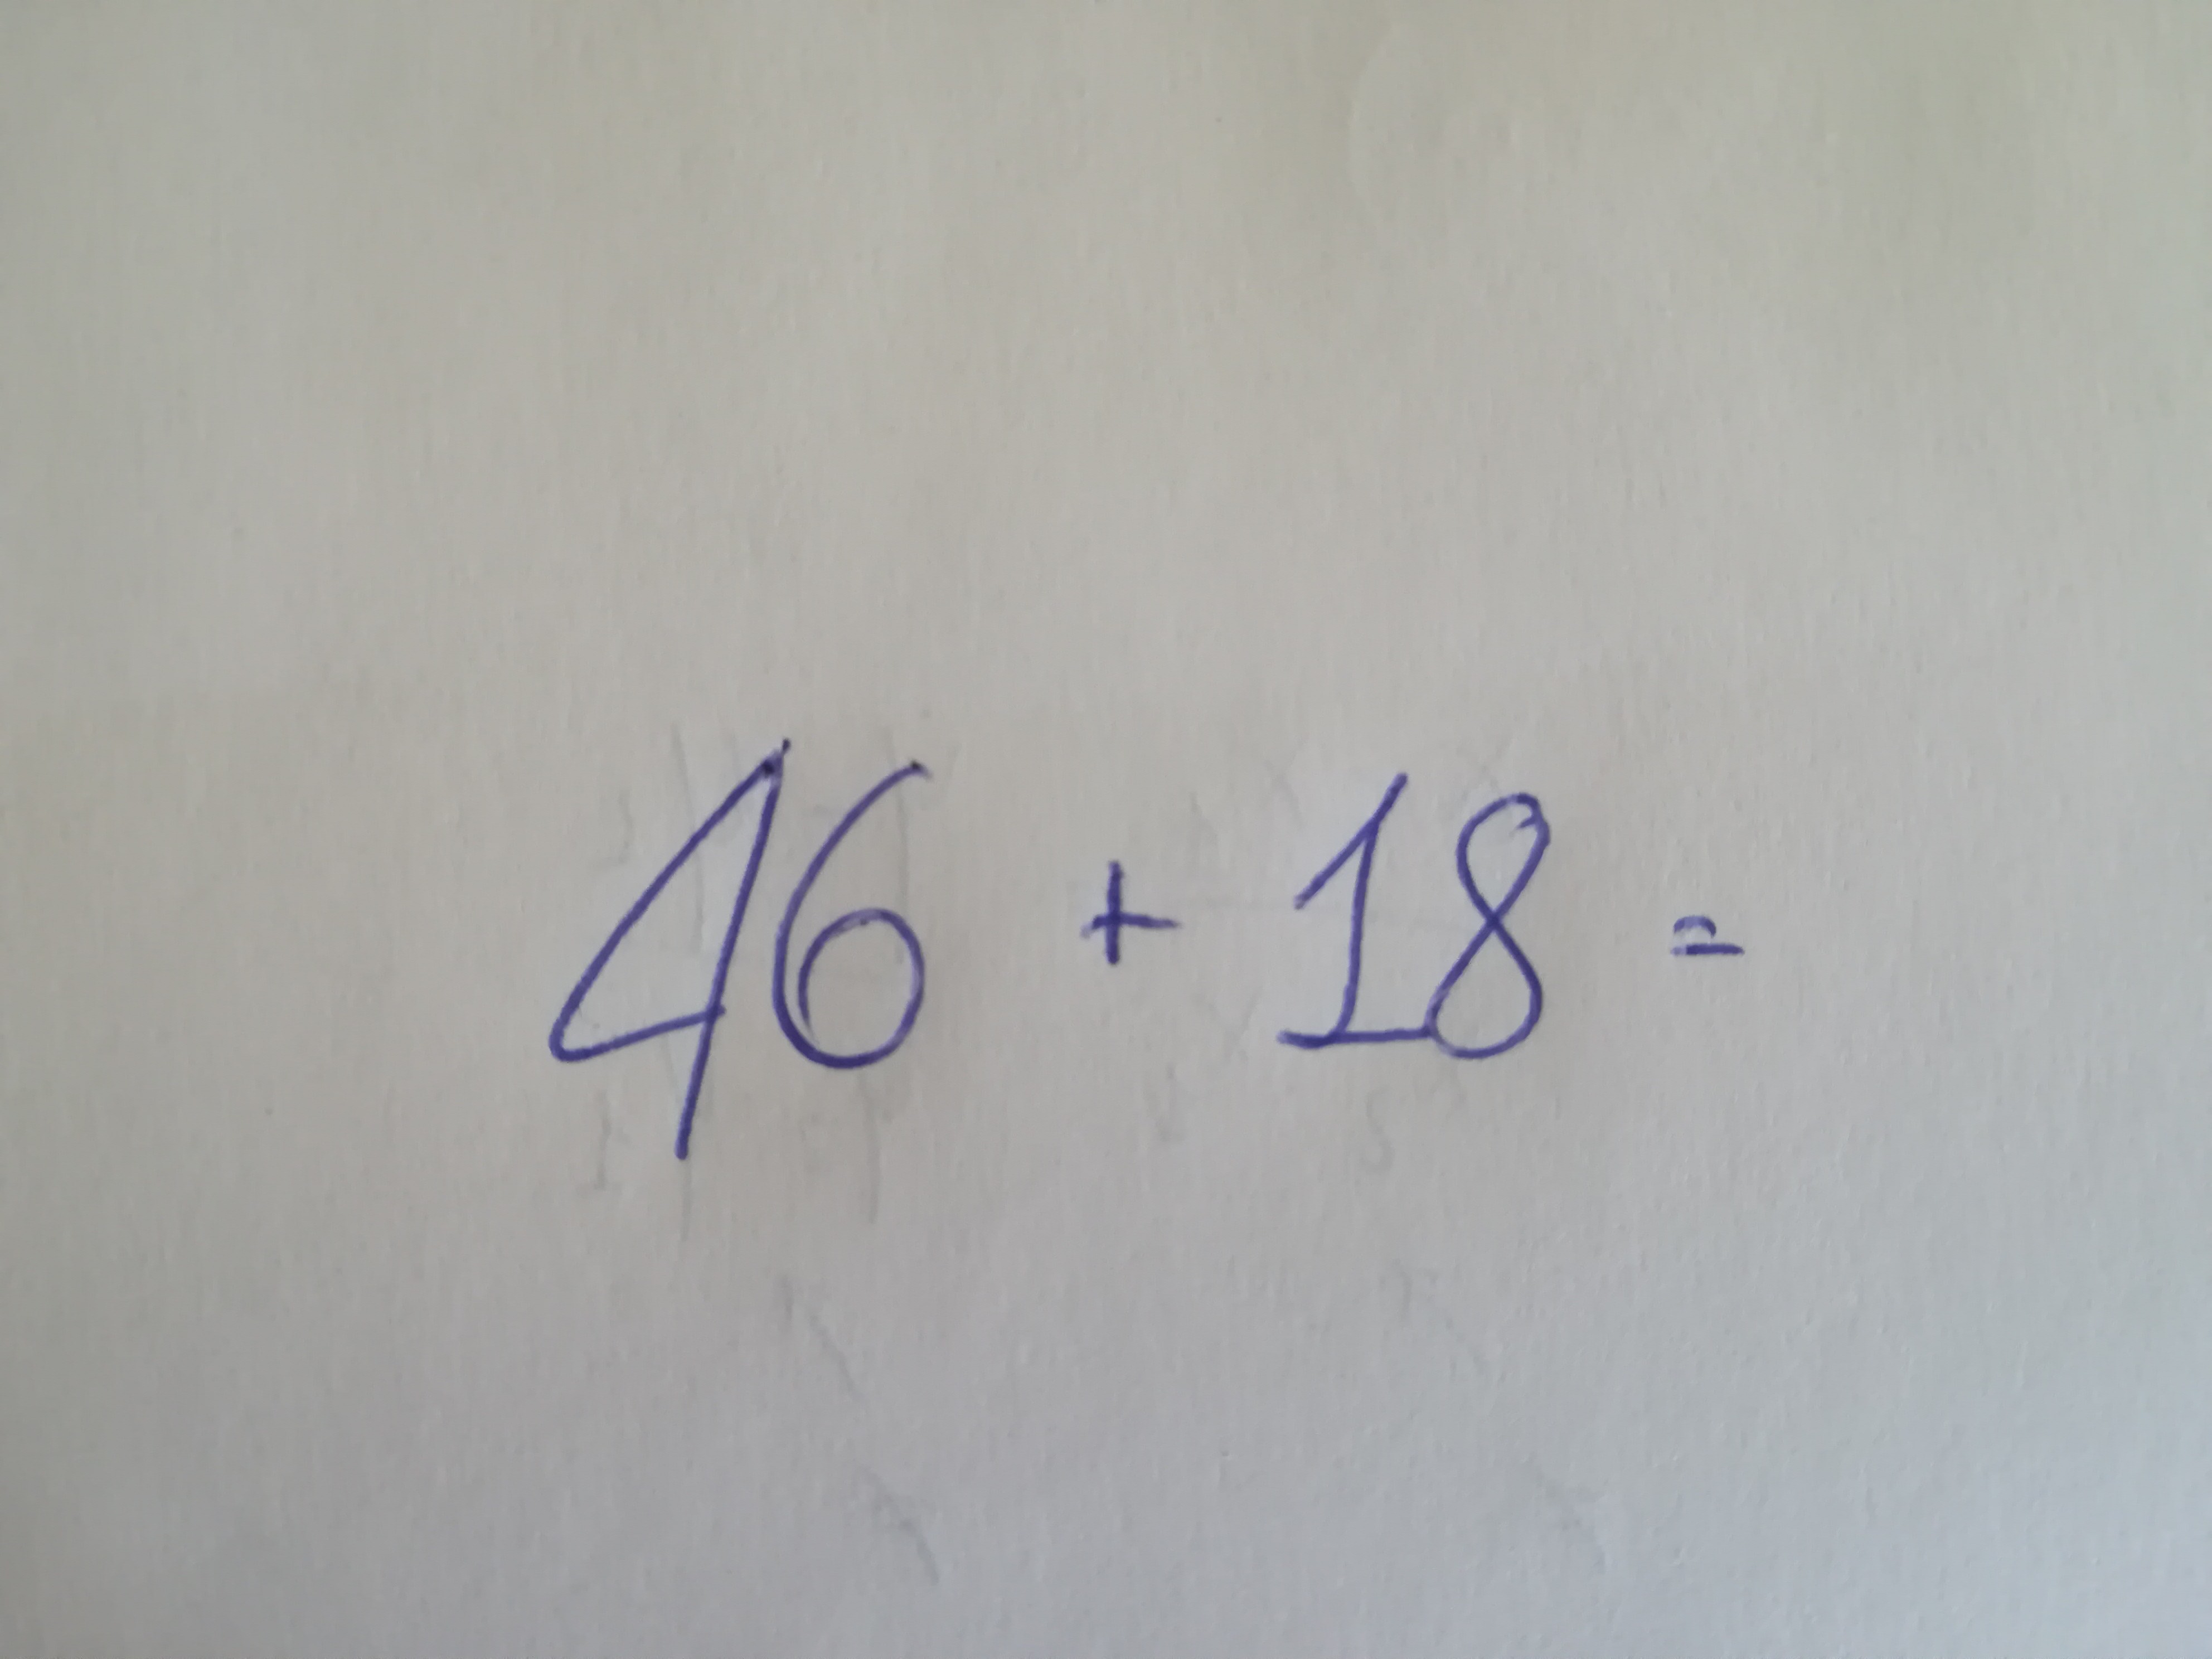 46 + 18 =